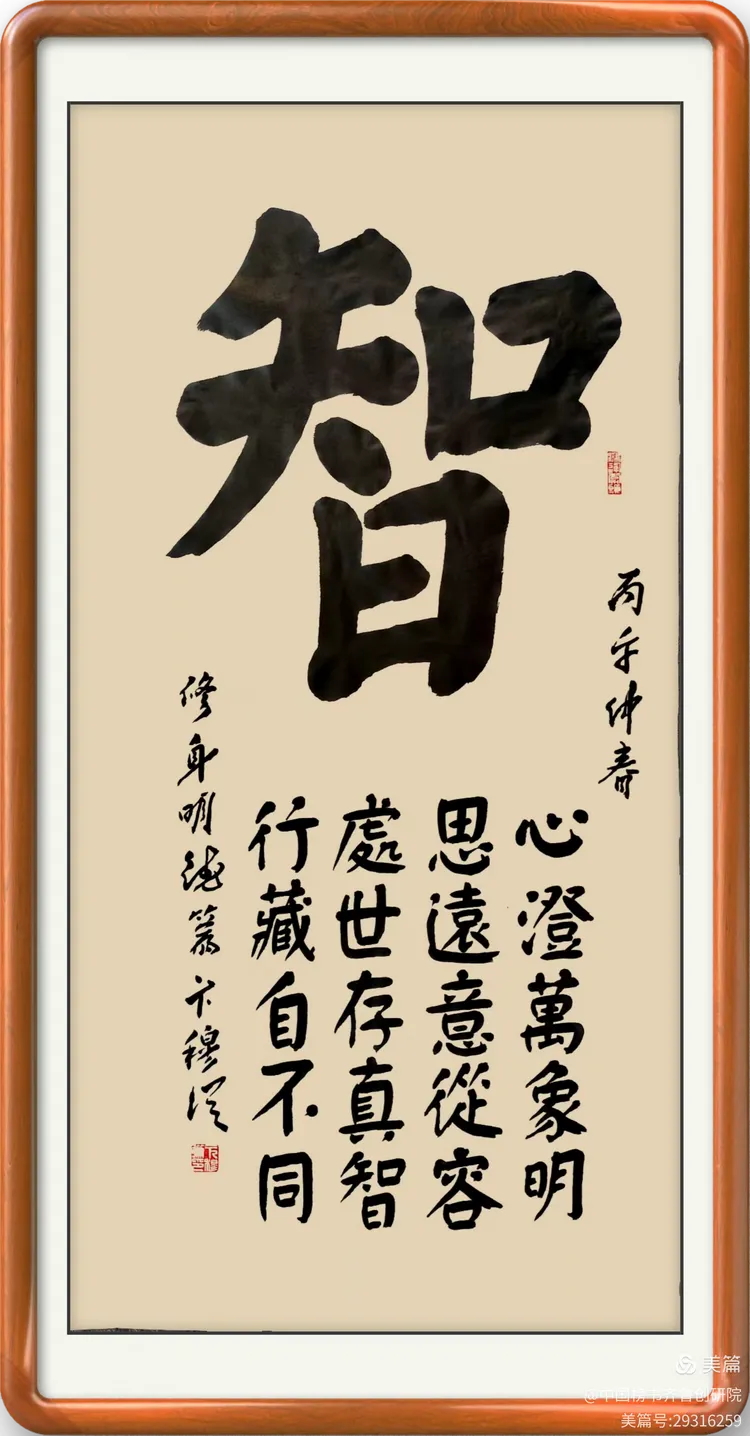 智
丙午仲春
心澄萬象明
思遠意從容
處世存真智
行藏自不同
修身明德 卞穆
美篇
@中国榜书齐鲁创研院
美篇号:29316259